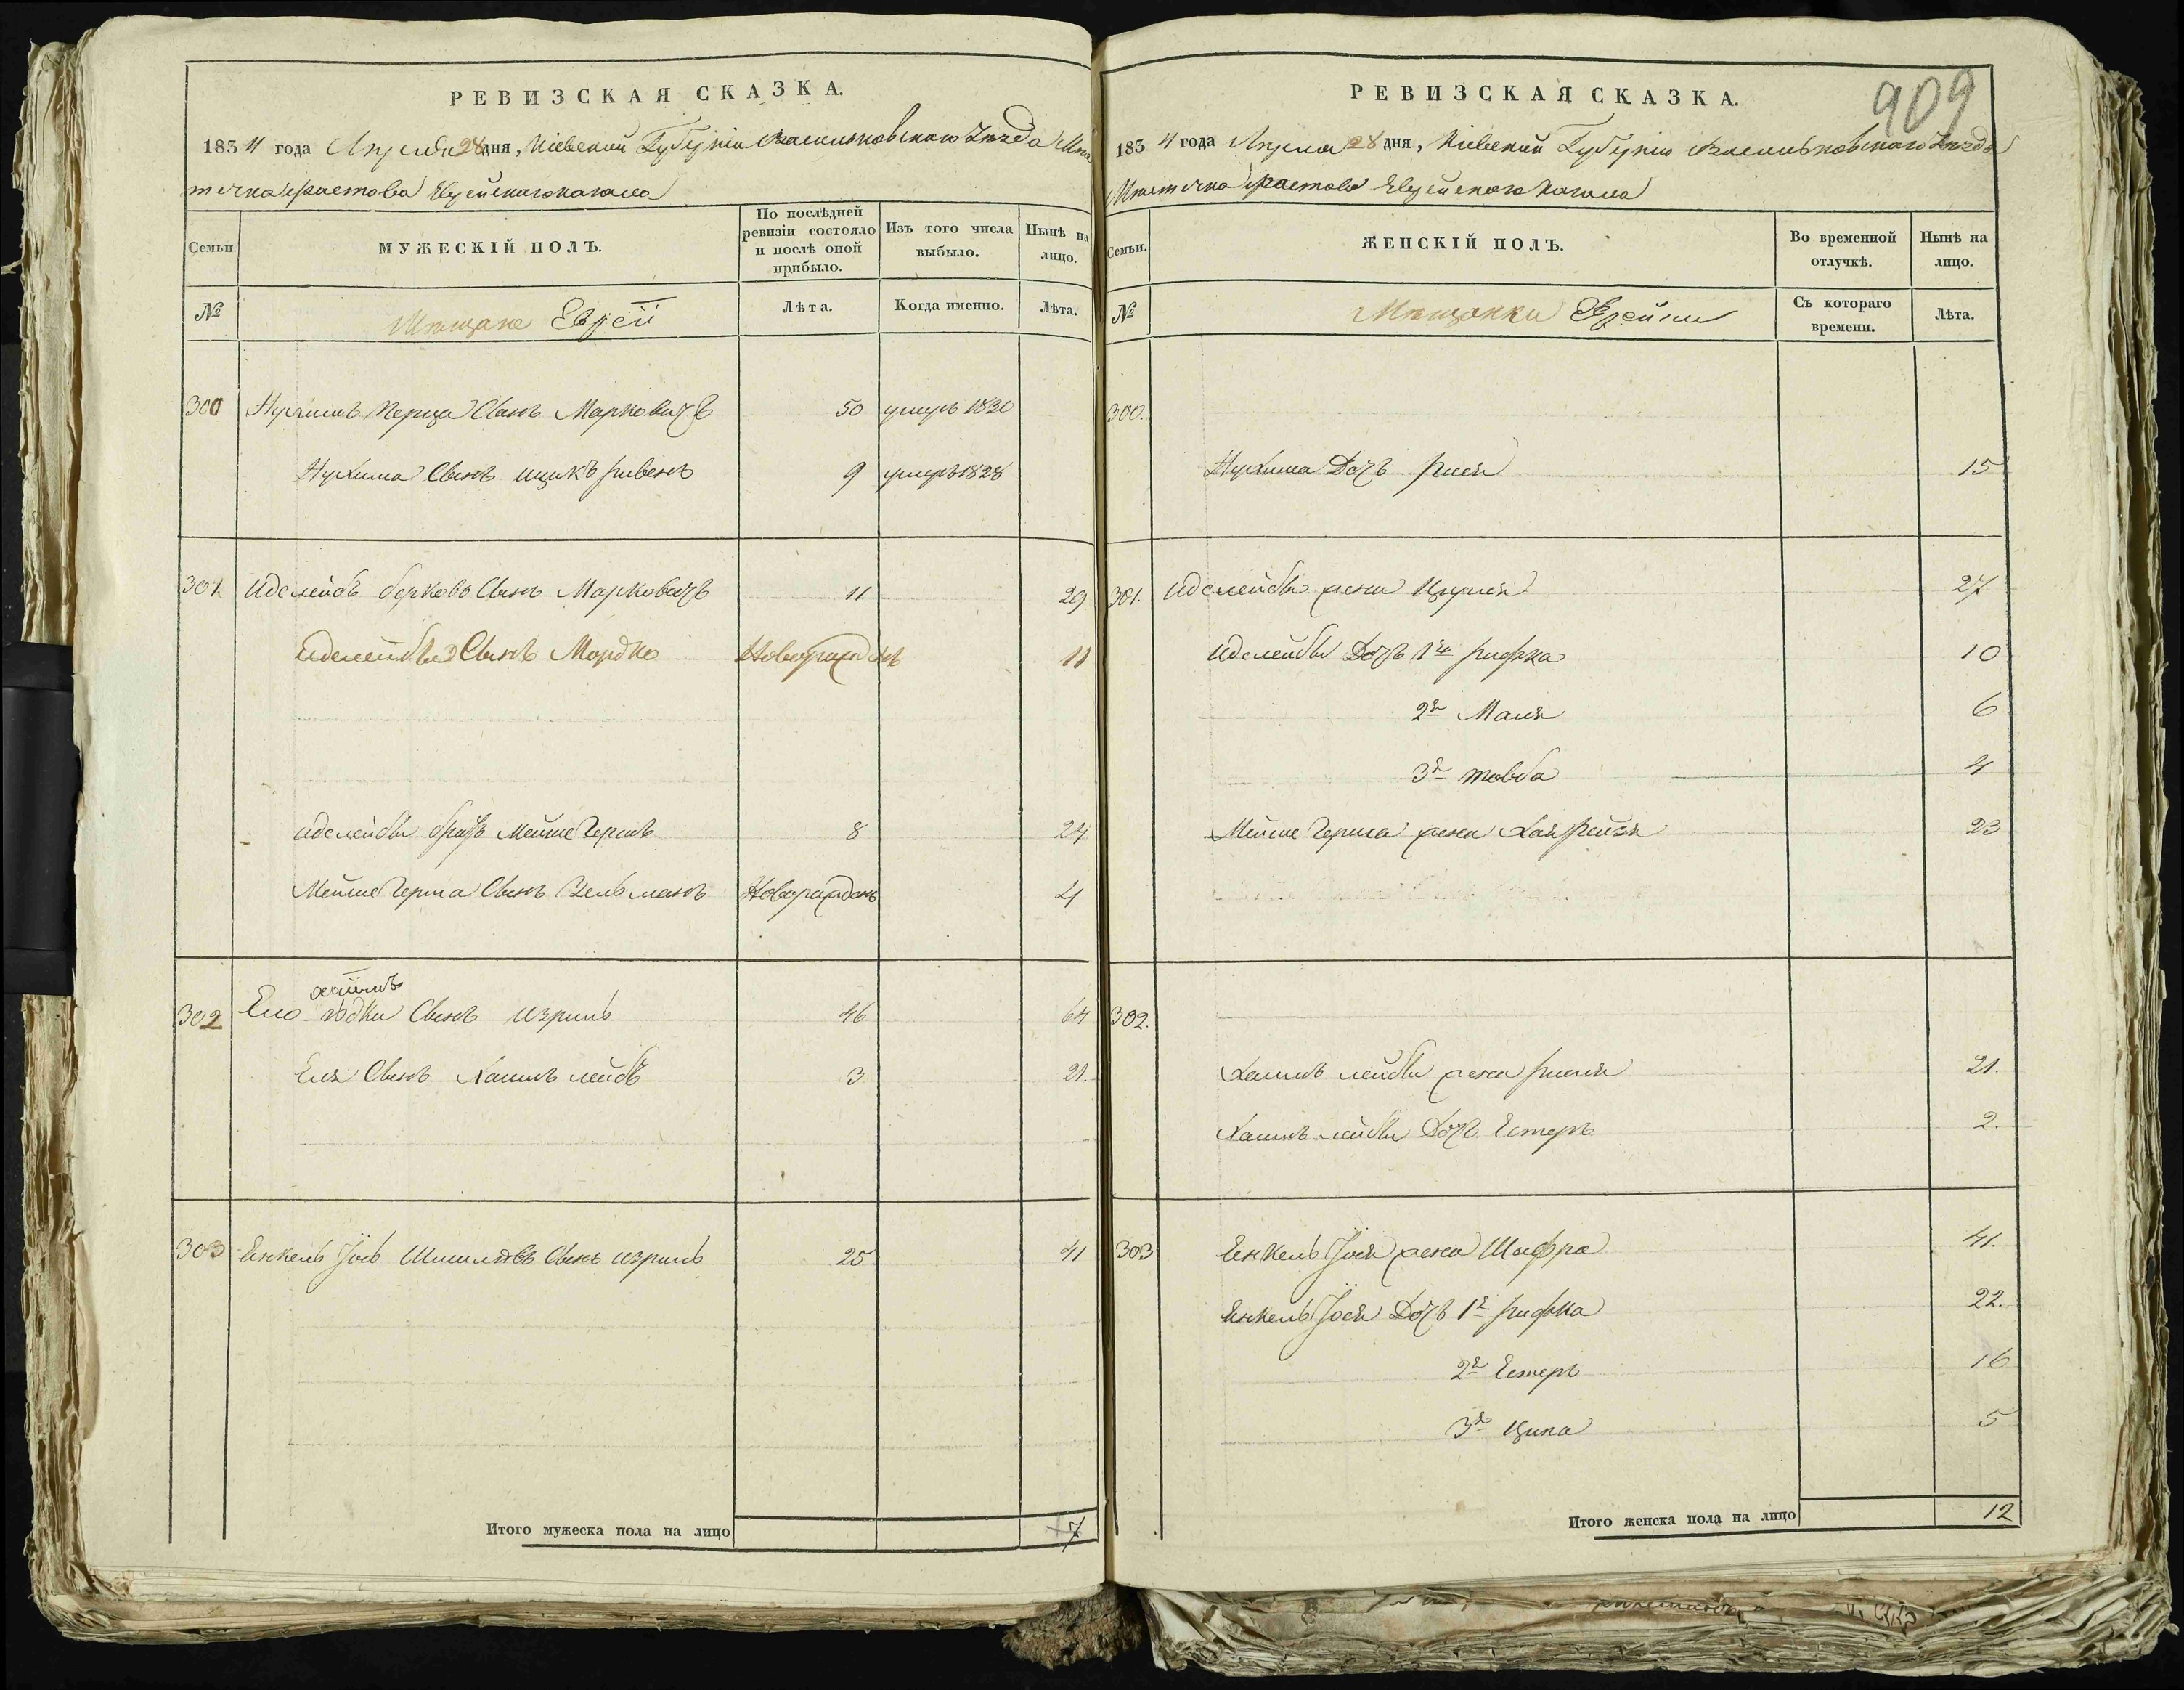 РЕВИЗСКАЯ СКАЗКА.
1834 года Апреля 28 дня, Кіевской Губерніи Васильковскаго Уезда Мѣс
течка Фастова Еврейскаго кагала
Семьи. МУЖЕСКІЙ ПОЛЪ. По послѣдней ревизіи состояло и послѣ оной прибыло. Изъ того числа выбыло. Нынѣ на лицо.
№ Мещане Евреи Лѣта. Когда именно. Лѣта.
300 Нухимъ Перца Сынъ Марковичъ 50 умеръ 1830
Нухима Сынъ Ицикъ рывенъ 9 умеръ 1828
301 Иделейбъ берковъ Сынъ Марковичъ 11 29
Иделейбы Сынъ Мордко Новорожденъ 11
иделейбы братъ Мейше Гершъ 8 24
Мейше Герша Сынъ Зельманъ Новорожденъ 4
хаимъ
302 Елю Сынъ Израиль 46 64
Еля Сынъ Хаимъ лейбъ 3 21.
303 Енкель Іось Сынъ Израиль 25 41
Итого мужеска пола на лицо 7
909
РЕВИЗСКАЯ СКАЗКА.
1834 года Апреля 28 дня, Кіевской Губерніи Васильковскаго Уезда
Местечка Фастова Еврейскаго кагала
Семьи. ЖЕНСКІЙ ПОЛЪ. Во временной отлучкѣ. Нынѣ на лицо.
№ Мещанки Еврейки Съ котораго времени. Лѣта.
300.
Нухима Дочь рися 15
301. Иделейбы жена Цурля 27
Иделейбы Дочь 1я рифка 10
2я Маля 6
3я товба 4
Мейше Герша жена Хая рейзя 23
302.
Хаимъ лейбы жена 21.
Хаимъ лейбы Дочь Естеръ 2.
303 Енкель Іося жена Шифра 41.
Енкель Іося Дочь 1я рифка 22.
2я Естеръ 16
3я Ципа 5
Итого женска пола на лицо 12